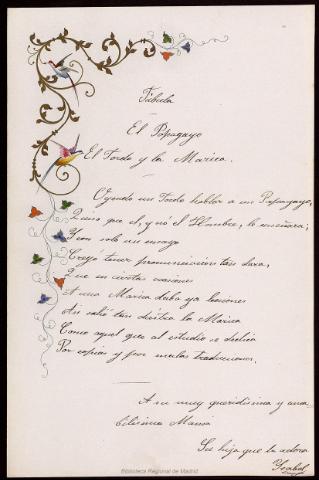 Fábula
El Papagayo
El Tordo y la Marica.
Oyendo un Tordo hablar a un Papagayo,
Quiso que él, y nó el Hombre, le enseñara;
Y con solo un ensayo
Creyó tener pronunciación tan clara,
Que en ciertas ocasiones
A una Marica daba ya lecciones
Así salió tan diestra la Marica
Como aquel que al estudio se dedica
Por copias y por malas traducciones.
A su muy queridisima y ama
bilisima Mamá
Su hija que la adora
Ysabel
Biblioteca Regional de Madrid